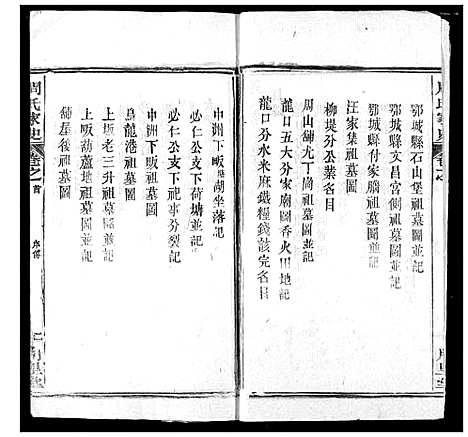 鄂城縣石山堡祖墓圖並記
鄂城縣文昌宮側祖墓圖並記
鄂城縣付家腦祖墓圖並記
汪家集祖墓圖並記
柳堤分公業各目
周山舖尤丁崗祖墓圖並記
龍口五大分家廟圖香火田地記
龍口分水米麻鐵糧錢該完各目
中洲下畈湖坐落記
必仁公支下荷塘並記
必仁公支下祀事分裂記
中洲下畈祖墓圖
烏龍港祖墓圖
上坂老三升祖墓圖並記
上畈葫蘆地祖墓圖並記
舖屋後祖墓圖
周氏家史 卷之首